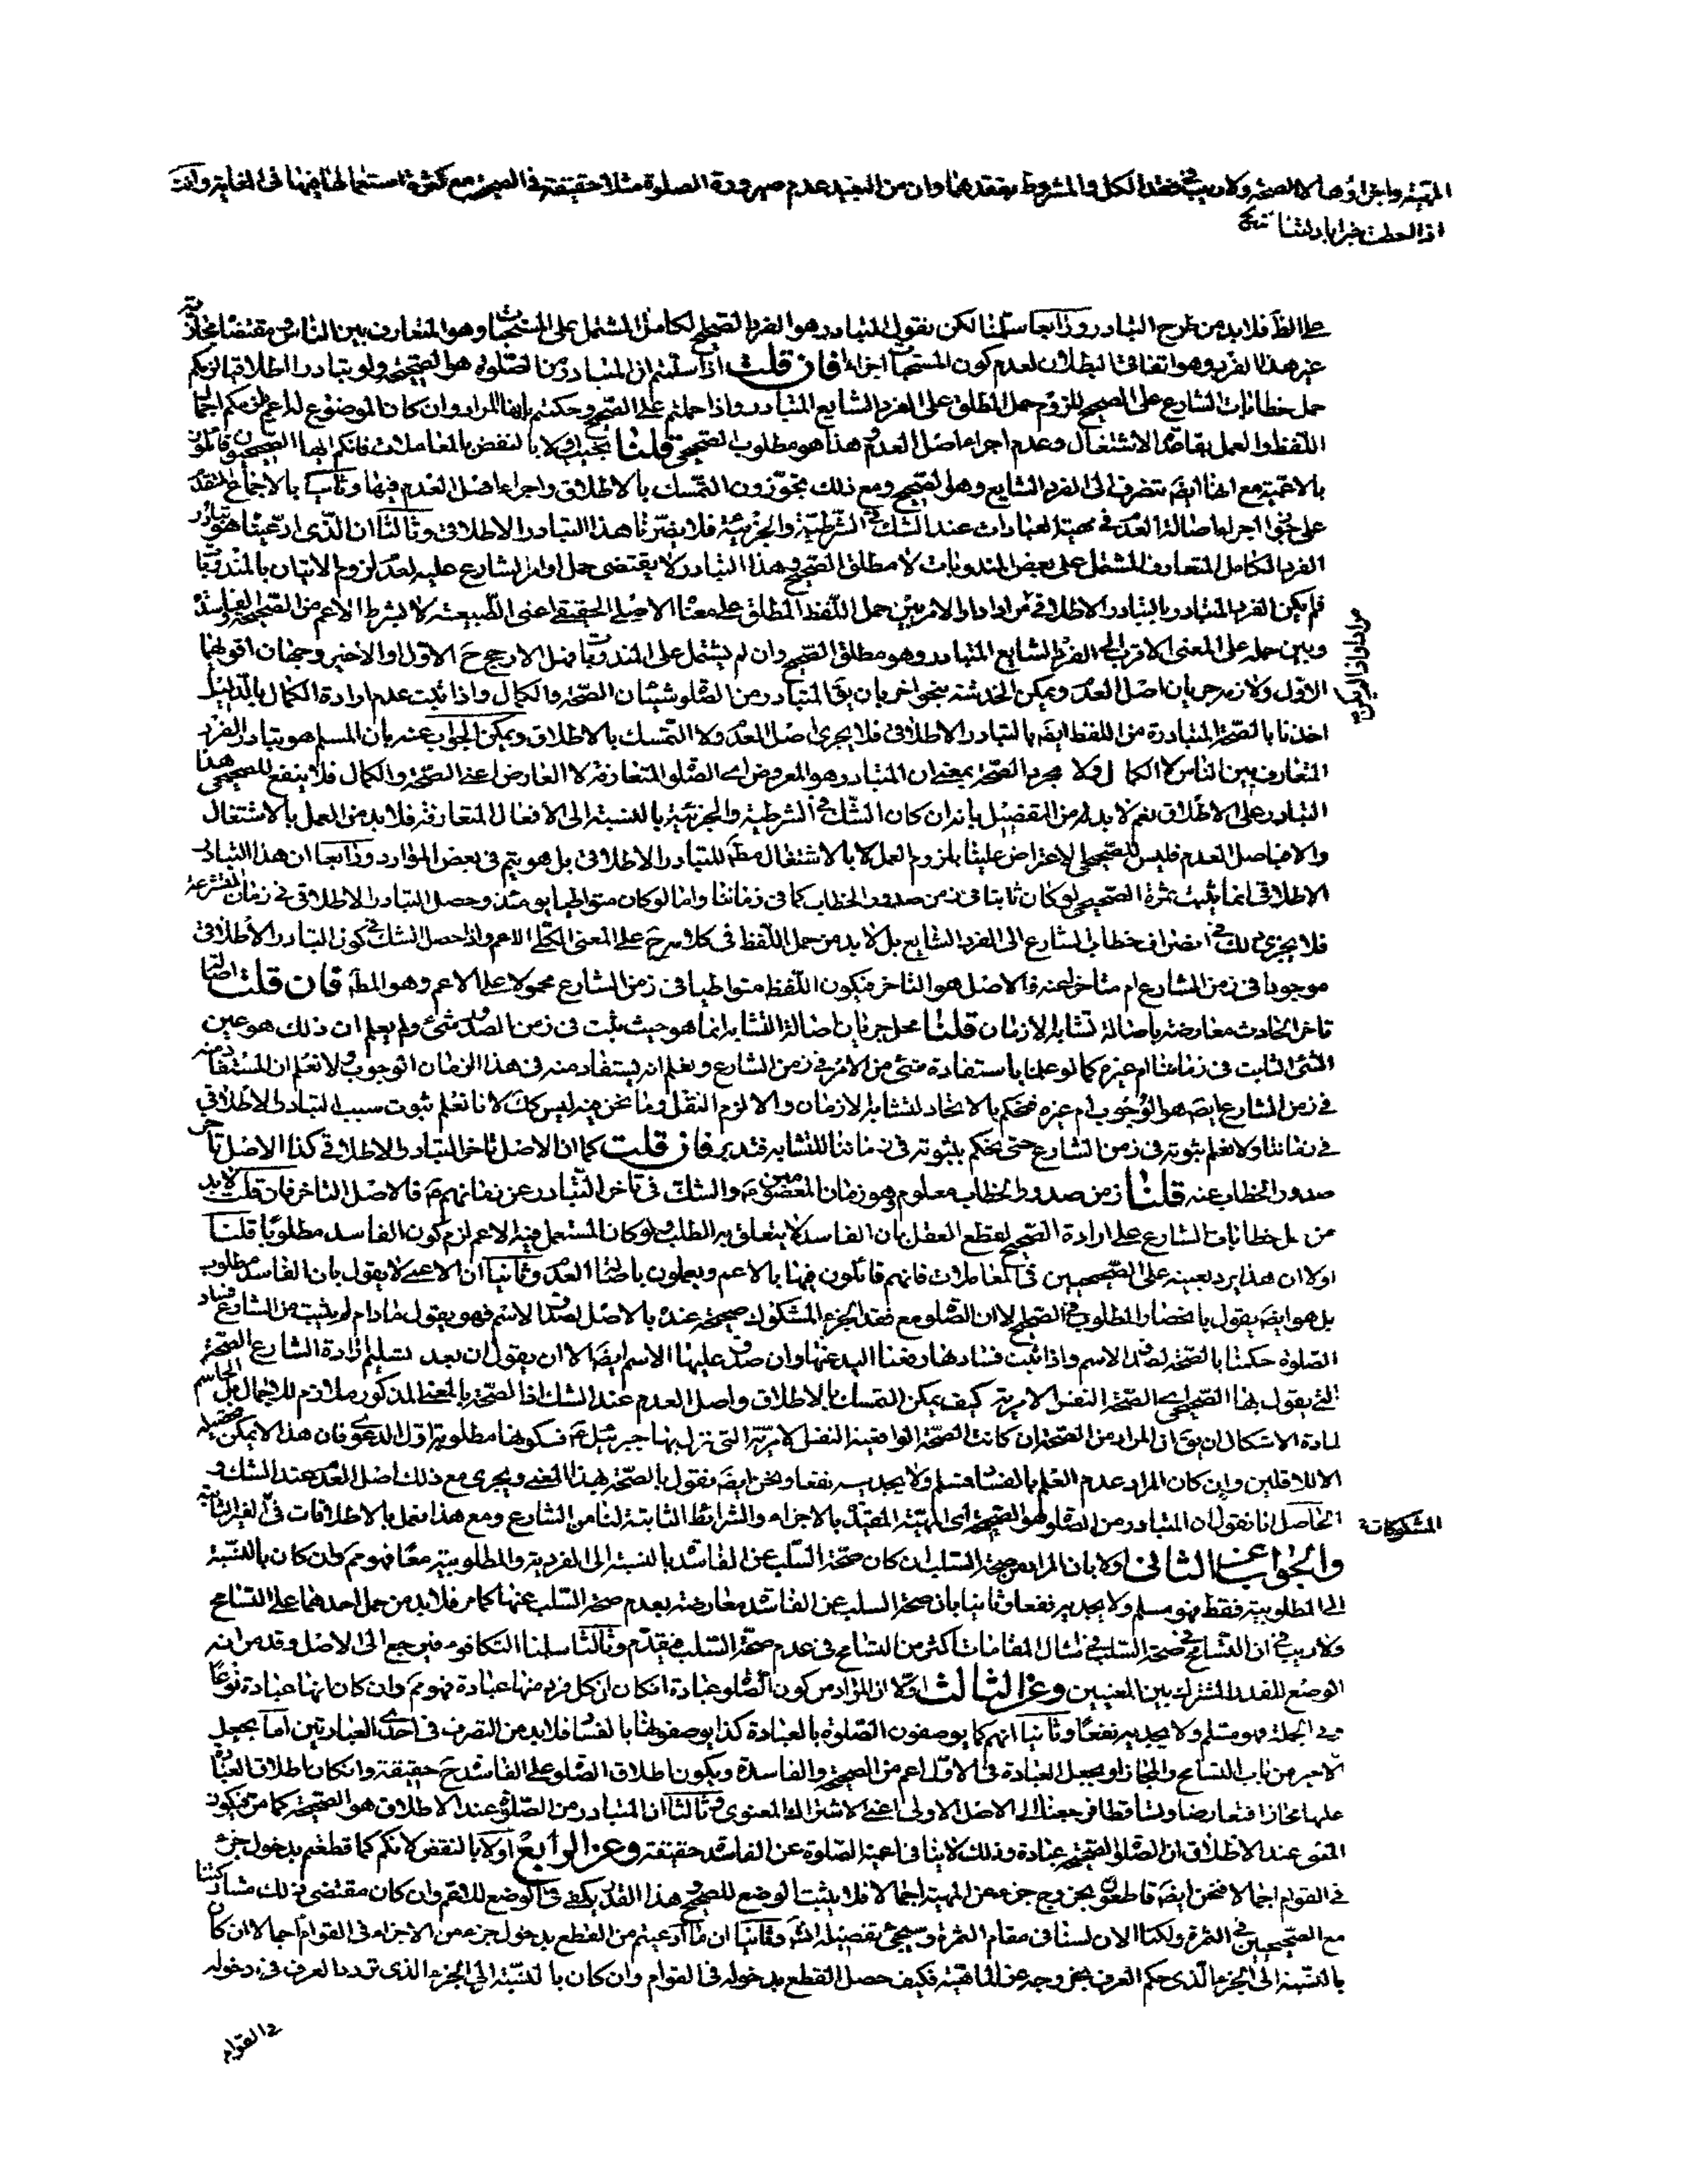 المهيته واجزاؤها لا الصحة ولا ريب في فقد الكل والمشروط بفقدهما وان من البعيد عدم صيرورة الصلوة مثلا حقيقة في الصحيح مع كثرة استعمالها فيها في الغاية وانت
اذا احطت خبرا بادلتنا
على الظ فلا بد من طرح التبادر ورابعا سلمنا لكن نقول المتبادر هو الفرد الصحيح الكامل المشتمل على المستحبات وهو المتعارف بين الناس مقتضا مجازية
غير هذا الفرد وهو اتفاقي البطلان لعدم كون المستحبات اجزاء فان قلت اذا سلمتم ان المتبادر من الصلوة هو الصحيحة ولو بتبادر اطلاقي لزمكم
حمل خطابات الشارع على الصحيح للزوم حمل المطلق على الفرد الشايع المتبادر واذا حملتم على الصحيح وحكمتم بانها المراد وان كان الموضوع له اعم لزمكم اجمال
اللفظ والعمل بقاعدة الاشتغال وعدم اجراء اصل العدم وهذا هو مطلوب الصحيحي قلنا نجيب اولا بالنقض بالمعاملات فانكم ايها الصحيحيون قائلون
بالاعمية مع انها ايضا تنصرف الى الفرد الشايع وهو الصحيح ومع ذلك تجوزون التمسك بالاطلاق واجراء اصل العدم فيها وثانيا بالاجماع المتقدم
على جواز اجراء اصالة العدم في مهية العبادات عند الشك في الشرطية والجزئية فلا يضرنا هذا التبادر الاطلاقي وثالثا ان الذي ادعينا هو تبادر
الفرد الكامل المتعارف المشتمل على بعض المندوبات لا مطلق الصحيح وهذا التبادر لا يقتضى حمل اوامر الشارع عليه لعدم لزوم الاتيان بالمندوبات
فلم يكن الفرد المتبادر بالتبادر الاطلاقي مرادا دار الامر بين حمل اللفظ المطلق على معناه الاصلي الحقيقي اعنى الطبيعة لا بشرط الاعم من الصحيحة والفاسدة
وبين حمله على المعنى الاقرب الى الفرد الشايع المتبادر وهو مطلق الصحيح وان لم يشتمل على المندوبات فهل الارجح ح الاول او الاخير وجهان اقويهما
الاول ولازمه جريان اصل العدم ويمكن الخدشة بنحو اخر بان يق المتبادر من الصلوة شيئان الصحة والكمال واذا ثبت عدم ارادة الكمال بالدليل
اخذنا بالصحة المتبادرة من اللفظ ايضا بالتبادر الاطلاقي فلا يجرى اصل العدم ولا التمسك بالاطلاق ويمكن الجواب عنه بان المسلم هو تبادر الفرد
المتعارف بين الناس لا الكمال ولا مجرد الصحة بمعنى ان المتبادر هو المعروض اى الصلوة المتعارفة لا العارض اعنى الصحة والكمال فلا ينفع للصحيحي هذا
التبادر على الاطلاق نعم لا بد له من التفصيل بانه ان كان الشك في الشرطية والجزئية بالنسبة الى الافعال المتعارفة فلا بد من العمل بالاشتغال
والا فباصل العدم فليس للصحيحي الاعتراض علينا بلزوم العمل بالاشتغال مط للتبادر الاطلاقي بل هو يتم في بعض الموارد ورابعا ان هذا التبادر
الاطلاقي انما يثبت ثمرة الصحيحي لو كان ثابتا في زمن صدور الخطاب كما في زماننا واما لو كان متواطيا يومئذ وحصل التبادر الاطلاقي في زمان المتشرعة
فلا يجرى ذلك في انصراف خطاب الشارع الى الفرد الشايع بل لا بد من حمل اللفظ في كلامه ح على المعنى الكلي الاعم واذا حصل الشك في كون التبادر الاطلاقي
موجودا في زمن الشارع ام متاخرا عنه فالاصل هو التاخر فيكون اللفظ متواطيا في زمن الشارع محمولا على الاعم وهو المط فان قلت اصالة
تاخر الحادث معارضة باصالة تشابه الازمان قلنا محل جريان اصالة التشابه انما هو حيث يثبت في زمن الصدور شئ ولم يعلم ان ذلك هو عين
الشئ الثابت في زماننا ام غيره كما لو علمنا باستفادة شئ من الامر في زمن الشارع ونعلم انه يستفاد منه في هذا الزمان الوجوب ولا نعلم ان المستفاد منه
في زمن الشارع ايضا هو الوجوب ام غيره فنحكم بالاتحاد لتشابه الازمان والا لزم النقل وما نحن فيه ليس كك لانا نعلم ثبوت سبب التبادر الاطلاقي
في زماننا ولا نعلم ثبوته في زمن الشارع حتى نحكم بثبوته في زماننا للتشابه فتدبر فان قلت كما ان الاصل تاخر التبادر الاطلاقي كذا الاصل تاخر
صدور الخطاب عنه قلنا زمن صدور الخطاب معلوم وهو زمان المعصومين والشك في تاخر التبادر عن زمانهم فالاصل التاخر فان قلت لا بد
من حمل خطابات الشارع على ارادة الصحيح لقطع العقل بان الفاسد لا يتعلق به الطلب فلو كان المستعمل فيه الاعم لزم كون الفاسد مطلوبا قلنا
اولا ان هذا يرد بعينه على الصحيحيين في المعاملات فانهم قائلون فيها بالاعم ويعملون باصالة العدم وثانيا ان الاعمى لا يقول بان الفاسد مطلوب
بل هو ايضا يقول بانحصار المطلوب في الصحيح الا ان الصلوة مع فقد الجزء المشكوك صحيحة عنده بالاصل لصدق الاسم فهو يقول مادام لم يثبت من الشارع فساد
الصلوة حكمنا بالصحة لصدق الاسم واذا ثبت فسادها رفعنا اليد عنها وان صدق عليها الاسم ايضا الا ان يقول ان بعد تسليم ارادة الشارع الصحة
التى يقول بها الصحيحي اى الصحة النفس الامرية كيف يمكن التمسك بالاطلاق واصل العدم عند الشك اذ الصحة بالمعنى المذكور ملازم للاجمال بل الحاسم
لمادة الاشكال ان يق ان المراد من الصحة ان كانت الصحة الواقعية النفس الامرية التى نزل بها جبرئيل فكونها مطلوبة اول الدعوى فان هذا لا يمكن تحصيله
الا للاقلين وان كان المراد عدم العلم بالفساد فمسلم ولا يجديه نفعا ونحن ايضا نقول بالصحة بهذا المعنى ويجرى مع ذلك اصل العدم عند الشك و
الحاصل انا نقول ان المتبادر من الصلوة هو الصحيحة اى المهية المقيدة بالاجزاء والشرائط الثابتة لنا من الشارع ومع هذا نعمل بالاطلاقات في الغير الثابتة
المشكوكة
والجواب عن الثاني اولا بان المراد بصحة السلب ان كان صحة السلب عن الفاسد بالنسبة الى الفردية والمطلوبية معا فهو مم وان كان بالنسبة
الى المطلوبية فقط فهو مسلم ولا يجديه نفعا وثانيا بان صحة السلب عن الفاسد معارضة بعدم صحة السلب عنها كما مر فلا بد من حمل احدهما على التسامح
ولا ريب في ان التسامح في صحة السلب في امثال المقامات اكثر من التسامح في عدم صحة السلب فيقدم وثالثا سلمنا التكافؤ فيرجع الى الاصل وقد مر انه
الوضع للقدر المشترك بين المعنيين وعن الثالث اولا ان المراد من كون الصلوة عبادة ان كان ان كل فرد منها عبادة فهو مم وان كان انها عبادة نوعا
في الجملة فهو مسلم ولا يجديه نفعا وثانيا انهم كما يوصفون الصلوة بالعبادة كذا يوصفونها بالفساد فلا بد من التصرف في احدى العبارتين اما بجعل
الاخير من باب التسامح والمجاز او بجعل العبادة في الاول اعم من الصحيحة والفاسدة ويكون اطلاق الصلوة على الفاسدة ح حقيقة وان كان اطلاق العبادة
عليها مجازا فتعارضا وتساقطا فرجعنا الى الاصل الاولى اعنى الاشتراك المعنوى وثالثا ان المتبادر من الصلوة عند الاطلاق هو الصحيحة كما مر فيكون
المعنى عند الاطلاق ان الصلوة الصحيحة عبادة وذلك لا ينافي اعمية الصلوة عن الفاسدة حقيقة وعن الرابع اولا بالنقض لانكم كما قطعتم بدخول جزء
في القوام اجمالا فنحن ايضا قاطعون بخروج جزء عن المهية اجمالا فلا يثبت الوضع للصحيح وهذا القدر يكفى في الوضع للاعم وان كان مقتضى ذلك مشاركتنا
مع الصحيحيين في الثمرة ولكنا الان لسنا في مقام الثمرة وسيجئ تفصيله انشاء وثانيا ان ما ادعيتم من القطع بدخول جزء من الاجزاء في القوام اجمالا ان كان
بالنسبة الى الجزء الذى حكم العرف بخروجه عن الماهية فكيف حصل القطع بدخوله في القوام وان كان بالنسبة الى الجزء الذى تردد العرف في دخوله
في القوام